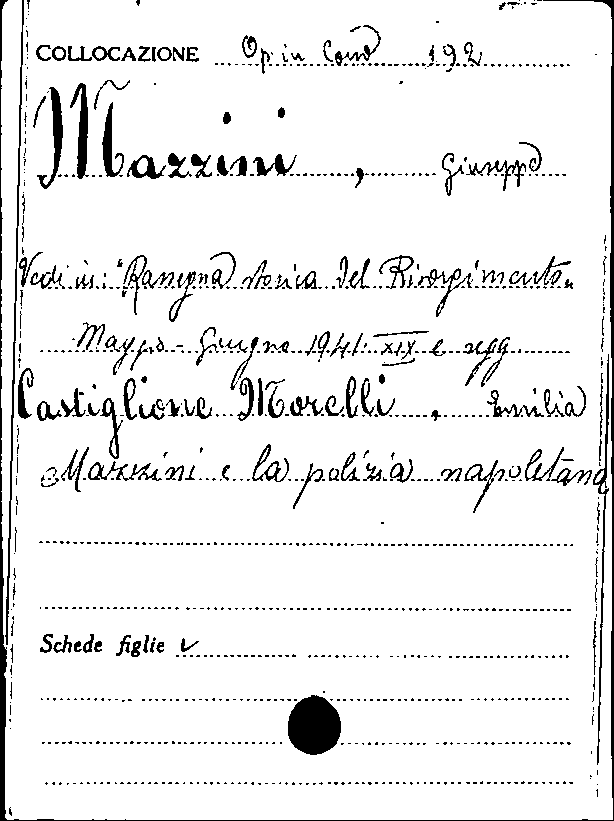 COLLOCAZIONE Op. in Cons 192
Mazzini, Giuseppe
Vedi in: "Rassegna storica del Risorgimento"
Maggio - Giugno 1941. XIX e segg.
Castiglione Morelli, Emilia
Mazzini e la polizia napoletana
Schede figlie